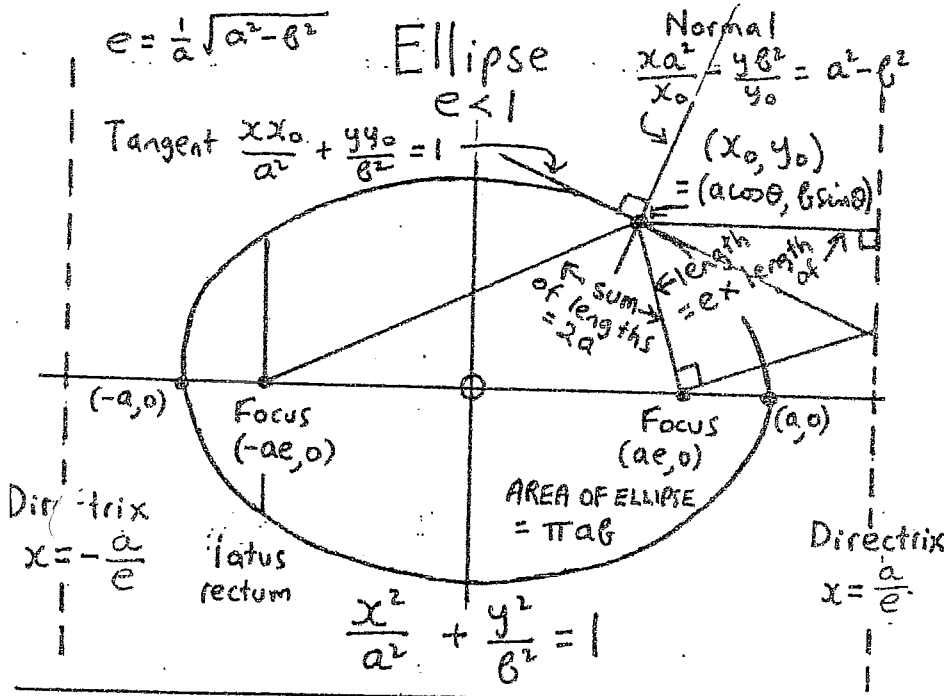 e = 1/a √(a² - b²)
Ellipse
e < 1
Normal
xa²/x₀ - yb²/y₀ = a² - b²
Tangent xx₀/a² + yy₀/b² = 1
(x₀, y₀)
= (a cosθ, b sinθ)
sum
of lengths
= 2a
length
= e × length
of
(-a,0)
Focus
(-ae,0)
Focus
(ae,0)
(a,0)
AREA OF ELLIPSE
= πab
Directrix
x = -a/e
latus
rectum
Directrix
x = a/e
x²/a² + y²/b² = 1